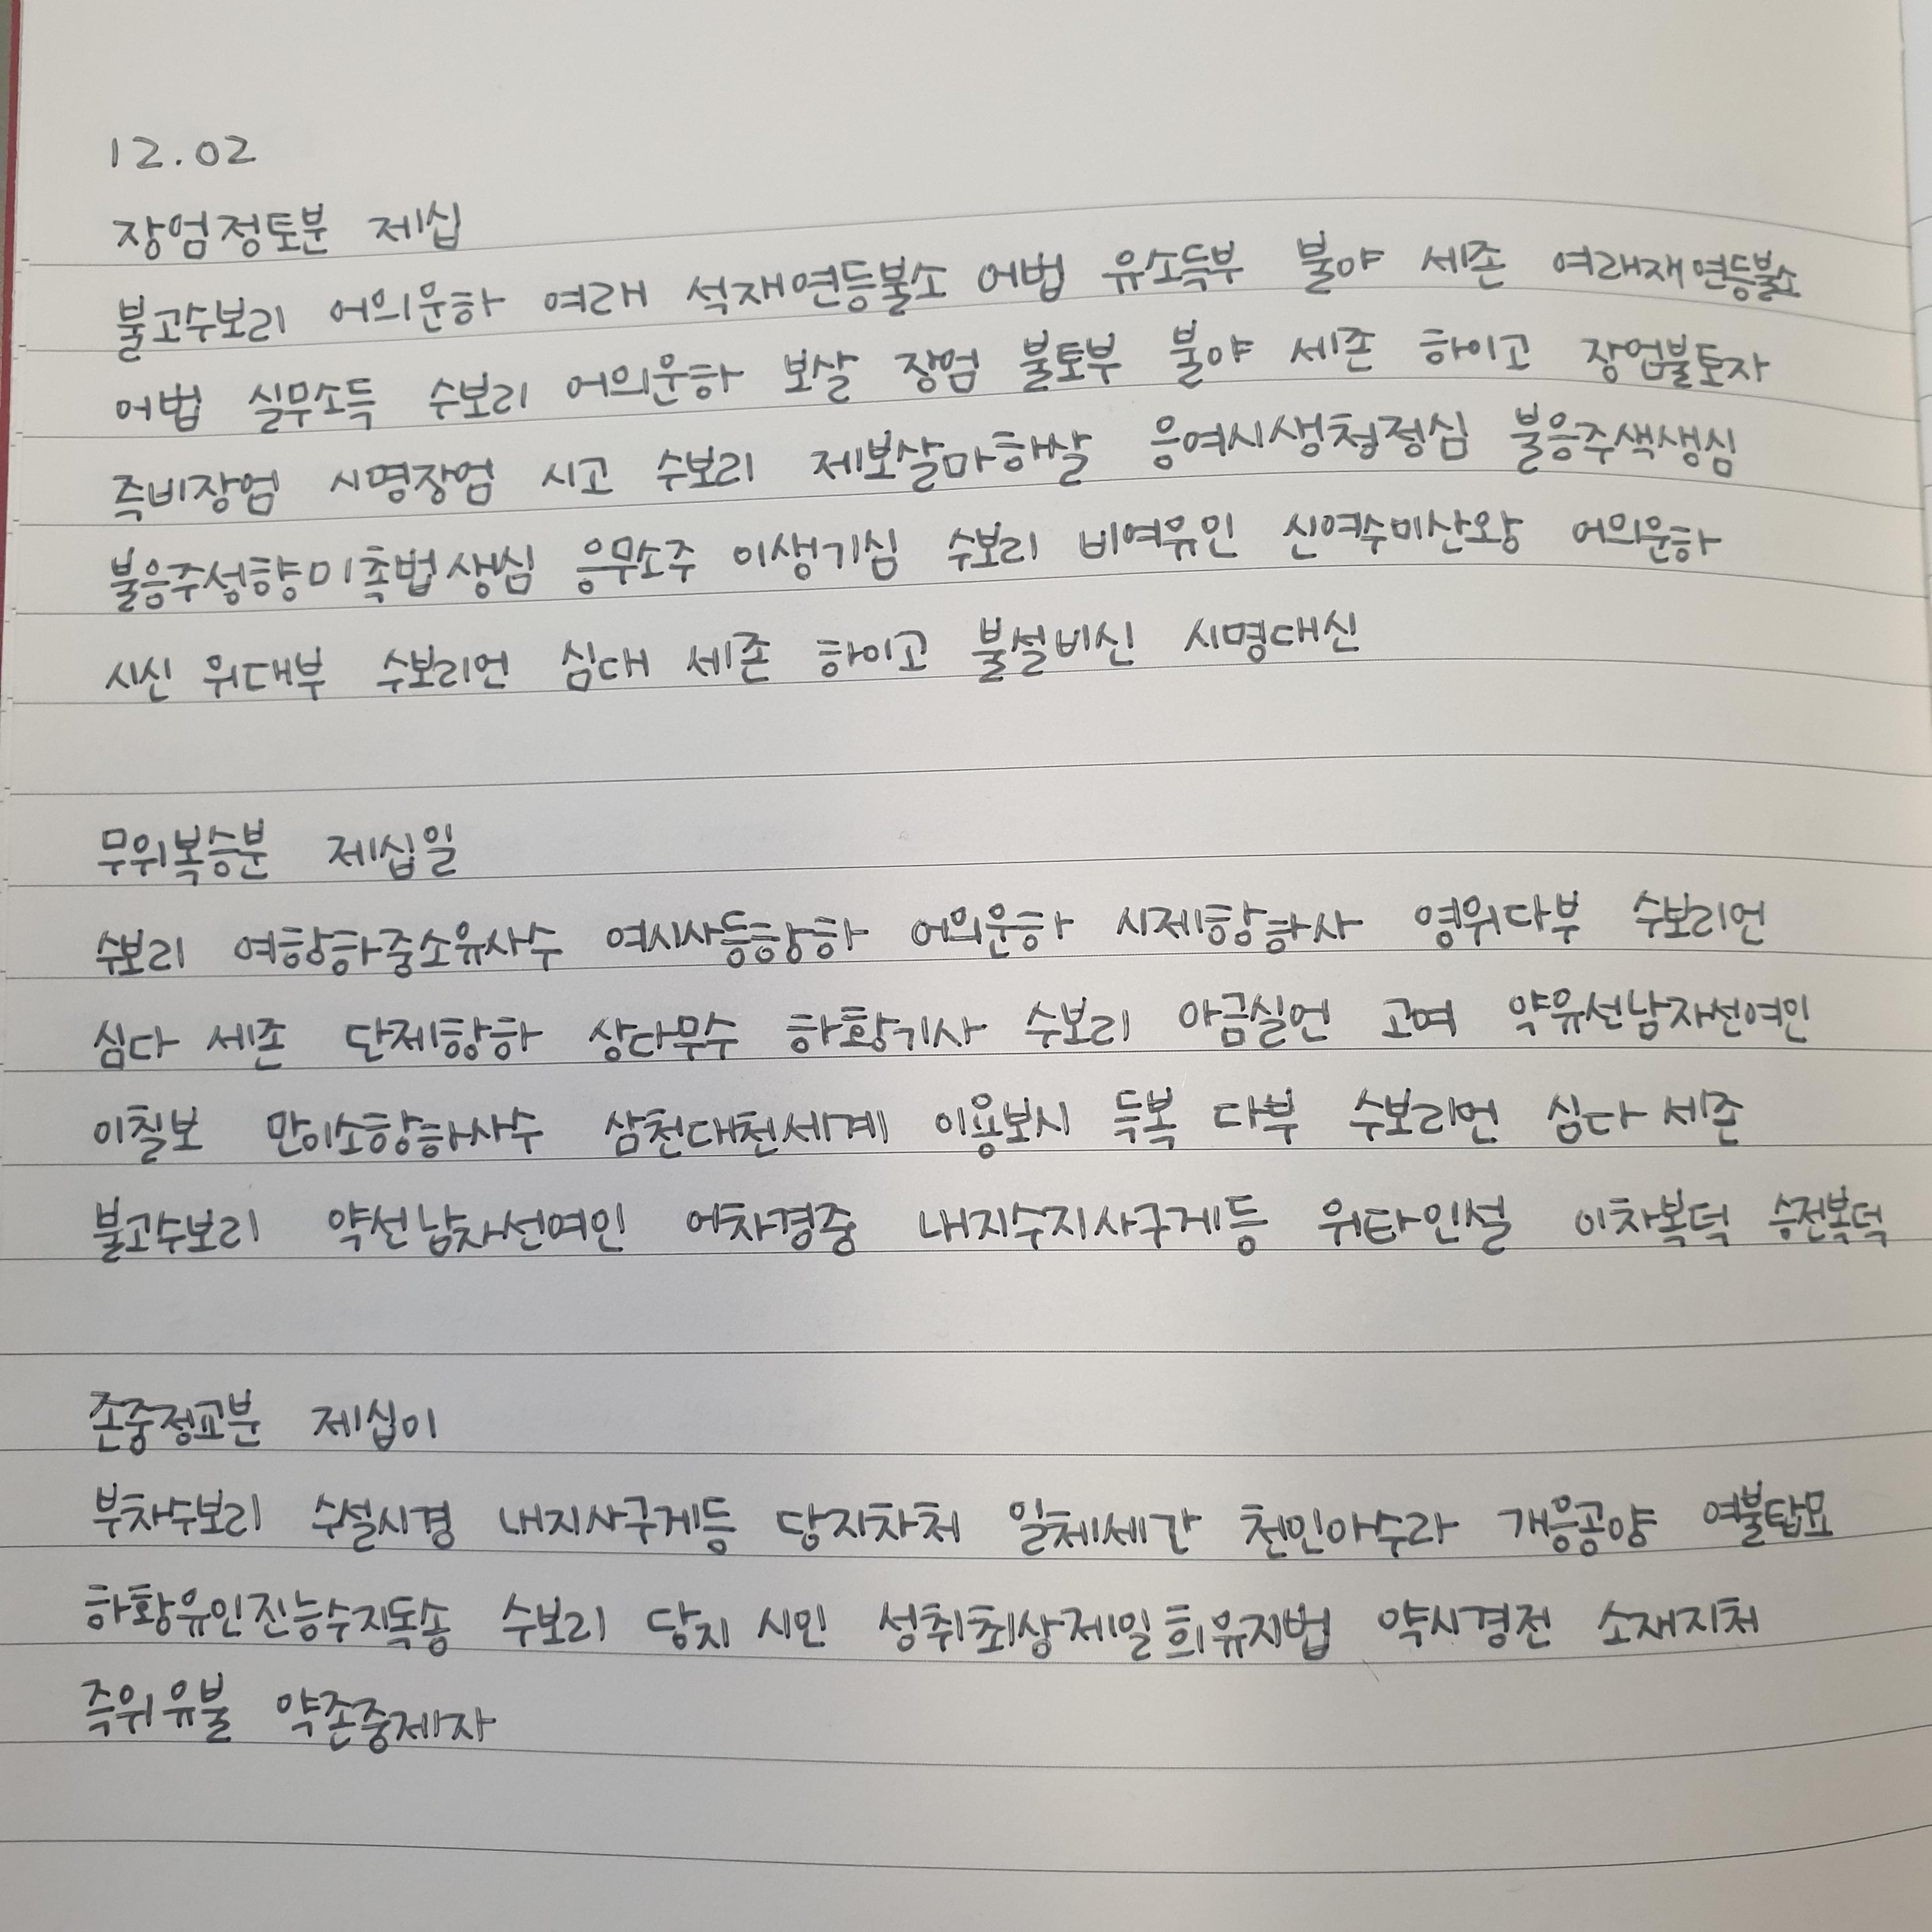 12.02
장엄정토분 제십
불고수보리 어의운하 여래 석재연등불소 어법 유소득부 불야 세존 여래재연등불소
어법 실무소득 수보리 어의운하 보살 장엄 불토부 불야 세존 하이고 장엄불토자
즉비장엄 시명장엄 시고 수보리 제보살마하살 응여시생청정심 불응주색생심
불응주성향미촉법생심 응무소주 이생기심 수보리 비여유인 신여수미산왕 어의운하
시신 위대부 수보리언 심대 세존 하이고 불설비신 시명대신
무위복승분 제십일
수보리 여항하중소유사수 여시사등항하 어의운하 시제항하사 영위다부 수보리언
심다 세존 단제항하 상다무수 하황기사 수보리 아금실언 고여 약유선남자선여인
이칠보 만이소항하사수 삼천대천세계 이용보시 득복 다부 수보리언 심다 세존
불고수보리 약선남자선여인 어차경중 내지수지사구게등 위타인설 이차복덕 승전복덕
존중정교분 제십이
부차수보리 수설시경 내지사구게등 당지차처 일체세간 천인아수라 개응공양 여불탑묘
하황유인진능수지독송 수보리 당지 시인 성취최상제일희유지법 약시경전 소재지처
즉위유불 약존중제자